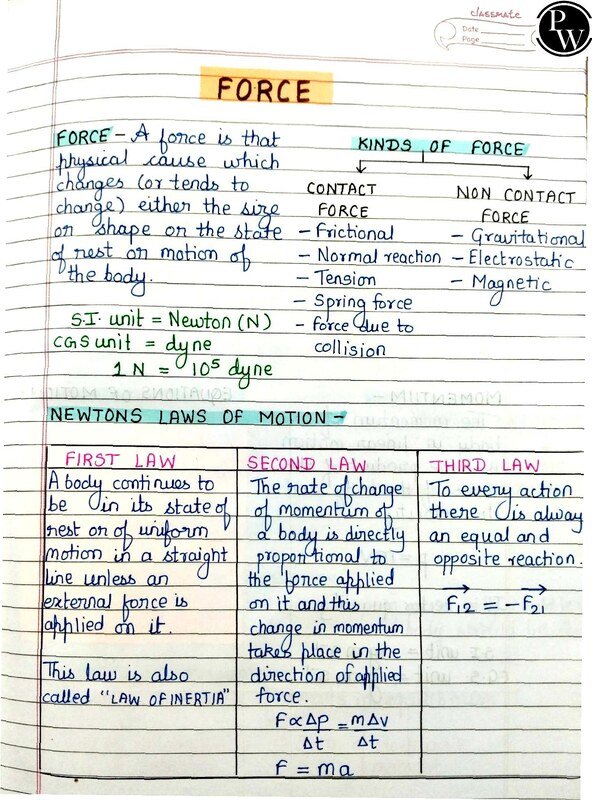 classmate
Date
Page
PW
FORCE
FORCE - A force is that
physical cause which
changes (or tends to
change) either the size
or shape or the state
of rest or motion of
the body.
S.I. unit = Newton (N)
CGS unit = dyne
1 N = 10⁵ dyne
KINDS OF FORCE
CONTACT
FORCE
- Frictional
- Normal reaction
- Tension
- Spring force
- force due to
collision
NON CONTACT
FORCE
- Gravitational
- Electrostatic
- Magnetic
NEWTONS LAWS OF MOTION -
FIRST LAW
A body continues to
be in its state of
rest or of uniform
motion in a straight
line unless an
external force is
applied on it.
This law is also
called "LAW OF INERTIA"
SECOND LAW
The rate of change
of momentum of
a body is directly
proportional to
the force applied
on it and this
change in momentum
takes place in the
direction of applied
force.
F ∝ Δp/Δt = mΔv/Δt
F = ma
THIRD LAW
To every action
there is alway
an equal and
opposite reaction.
F₁₂ = -F₂₁